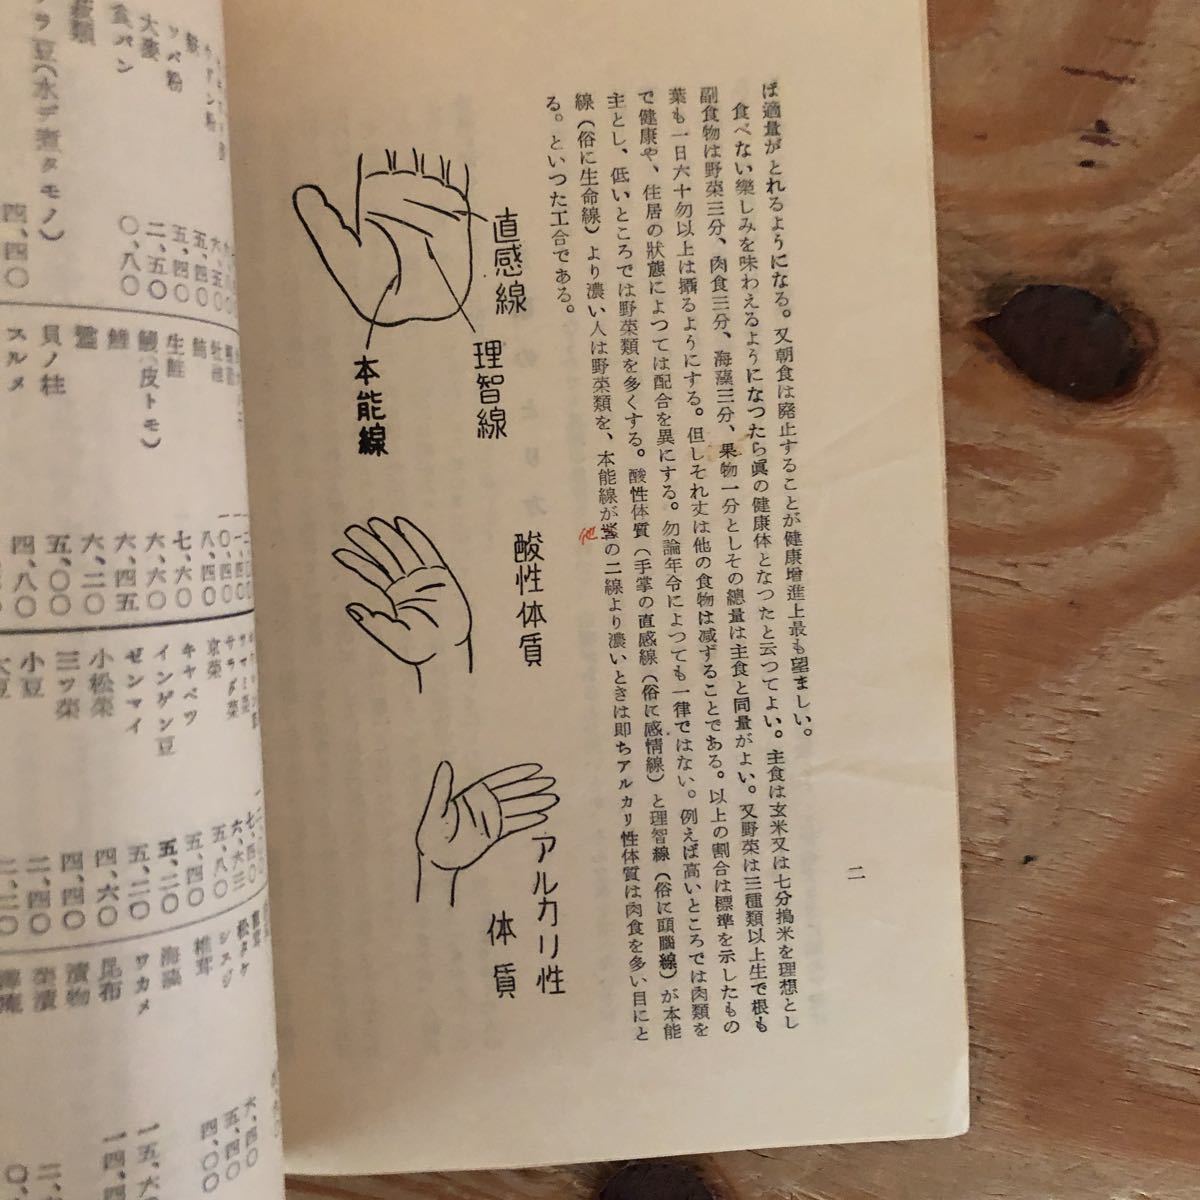 二
ば適量がとれるようになる。又朝食は廃止することが健康増進上最も望ましい。
食べない樂しみを味わえるようになつたら眞の健康体となつたと云つてよい。主食は玄米又は七分搗米を理想とし
副食物は野菜三分、肉食三分、海藻三分、果物一分としその總量は主食と同量がよい。又野菜は三種類以上生で根も
葉も一日六十匁以上は攝るようにする。但しそれ丈は他の食物は減ずることである。以上の割合は標準を示したもの
で健康や、住居の狀態によつては配合を異にする。勿論年令によつても一律ではない。例えば高いところでは肉類を
主とし、低いところでは野菜類を多くする。酸性体質（手掌の直感線（俗に感情線）と理智線（俗に頭腦線）が本能
線（俗に生命線）より濃い人は野菜類を、本能線が の二線より濃いときは即ちアルカリ性体質は肉食を多い目にと
る。といつた工合である。
他
直感線
理智線
本能線
酸性体質
アルカリ性
体質
食パン
大麥
ソバ粉
ウドン粉
〇、八〇
二、五〇
五、四〇
五、四〇
ラ豆（水デ煮タモノ）
四、四〇
牡蠣
生鮭
鰻（皮トモ）
鯉
貝ノ柱
スルメ
八、四〇
七、六〇
六、六〇
六、四五
六、二〇
五、〇〇
四、八〇
サラダ菜
京菜
キャベツ
インゲン豆
ゼンマイ
小松菜
三ッ葉
小豆
大豆
六、六三
五、八〇
五、四〇
五、二〇
五、二〇
四、六〇
四、四〇
二、四〇
二、二〇
松タケ
シメジ
椎茸
海藻
ワカメ
昆布
漬物
菜漬
六、四〇
五、四〇
四、〇〇